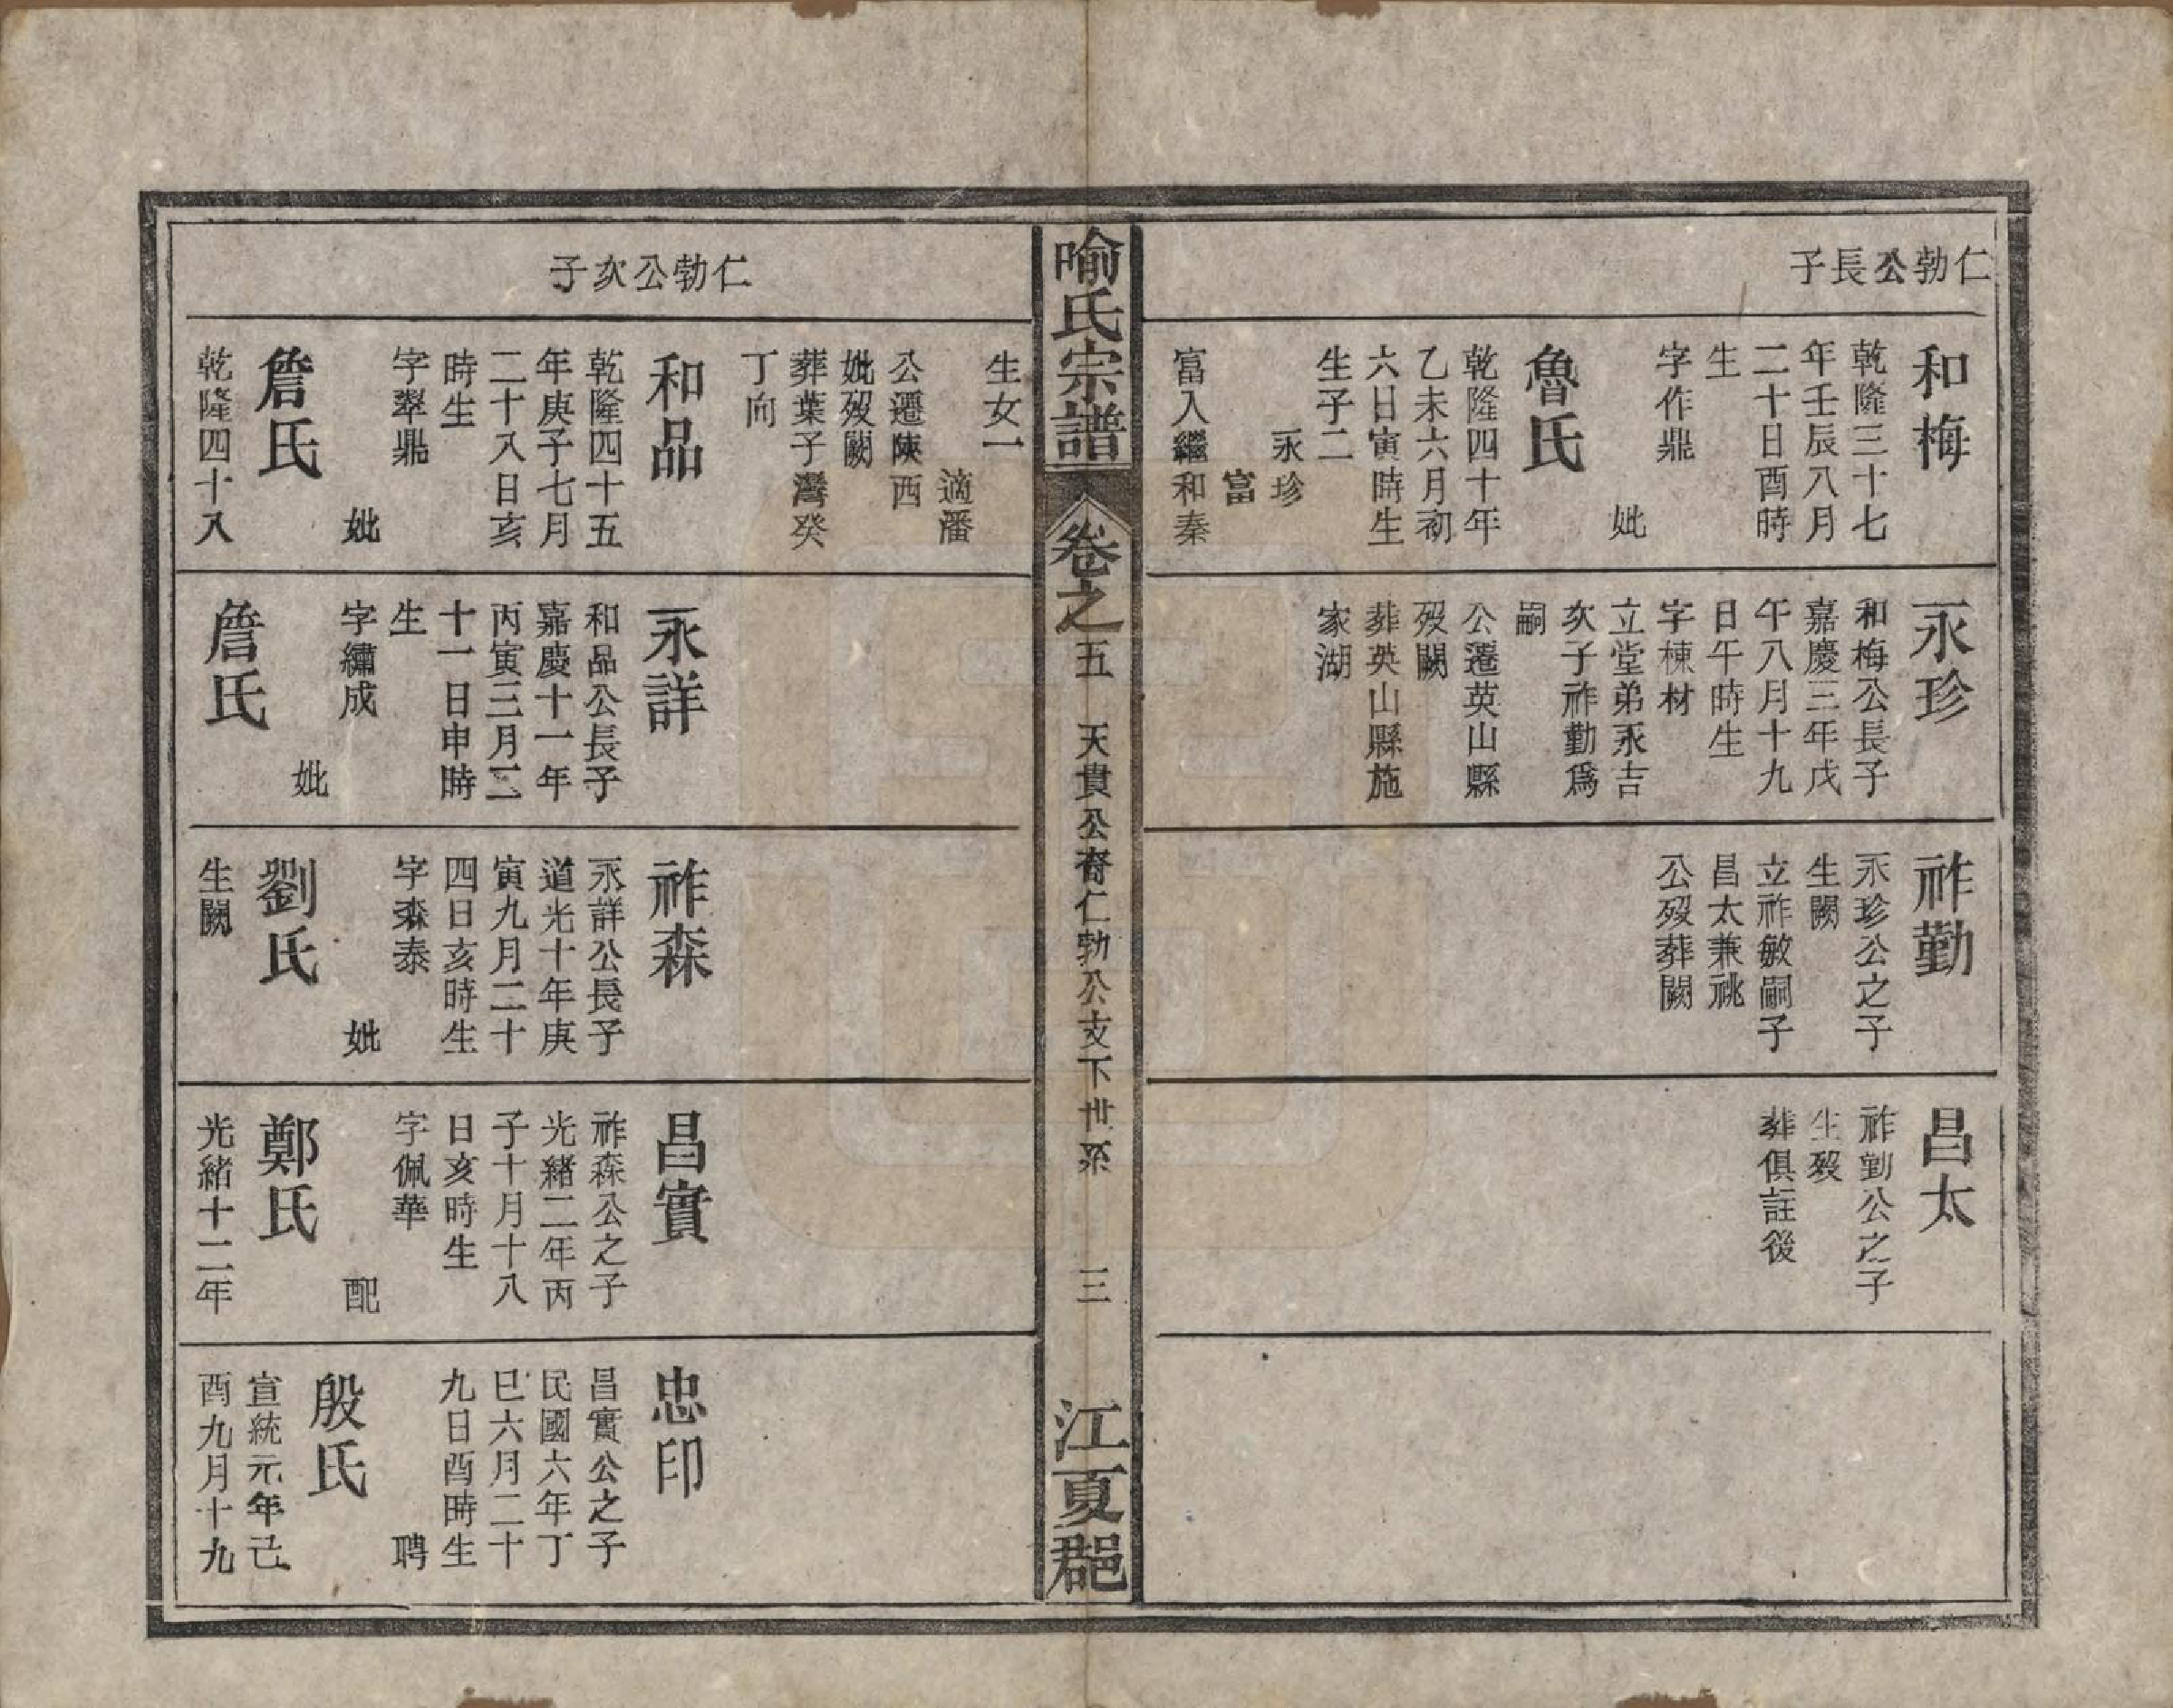 仁勃公長子
和梅
乾隆三十七
年壬辰八月
二十日酉時
生
字作鼎
妣
魯氏
乾隆四十年
乙未六月初
六日寅時生
生子二
永珍
富
富入繼和秦
永珍
和梅公長子
嘉慶三年戊
午八月十九
日午時生
字棟材
立堂弟永吉
次子祚勤爲
嗣
公遷英山縣
歿闕
葬英山縣施
家湖
祚勤
永珍公之子
生闕
立祚敏嗣子
昌太兼祧
公歿葬闕
昌太
祚勤公之子
生歿
葬俱註後
喻氏宗譜
卷之五
天貴公裔仁勃公支下世系
三
江夏郡
仁勃公次子
生女一
適潘
公遷陝西
妣歿闕
葬葉子灣癸
丁向
和品
乾隆四十五
年庚子七月
二十八日亥
時生
字翠鼎
妣
詹氏
乾隆四十八
永詳
和品公長子
嘉慶十一年
丙寅三月二
十一日申時
生
字繡成
妣
詹氏
祚森
永詳公長子
道光十年庚
寅九月二十
四日亥時生
字森泰
妣
劉氏
生闕
昌實
祚森公之子
光緒二年丙
子十月十八
日亥時生
字佩華
配
鄭氏
光緒十二年
忠印
昌實公之子
民國六年丁
巳六月二十
九日酉時生
聘
殷氏
宣統元年己
酉九月十九